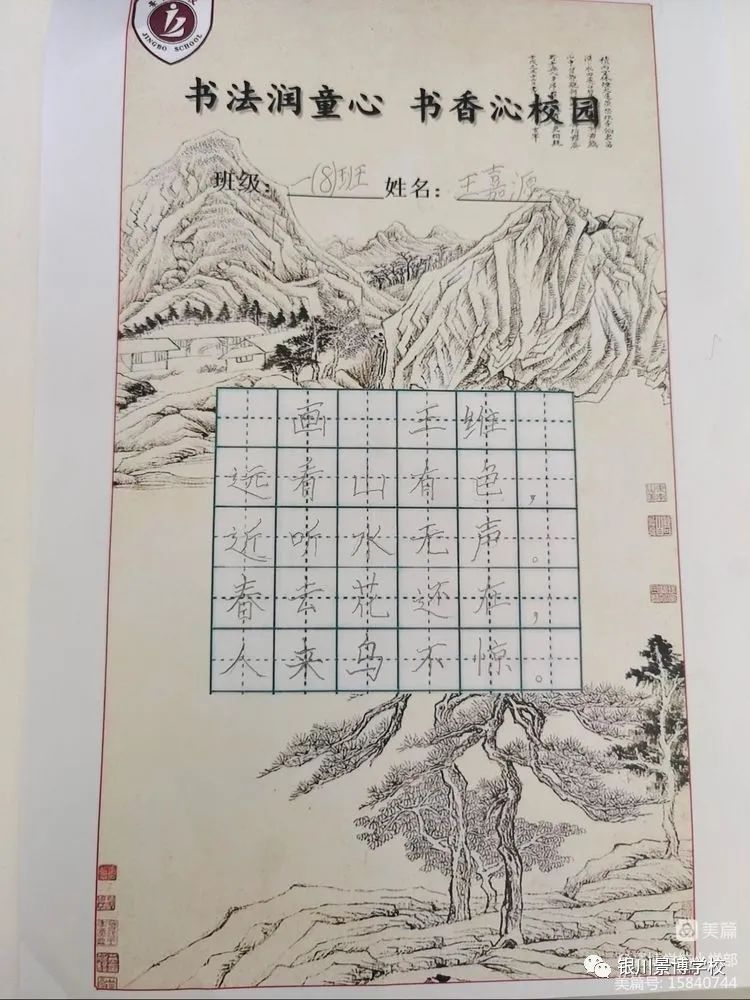 JINGBO SCHOOL
书法润童心 书香沁校园
班级：一(8)班 姓名：王嘉源
画 王维
远看山有色，
近听水无声。
春去花还在，
人来鸟不惊。
美篇
银川景博学校
美篇号: 15840744